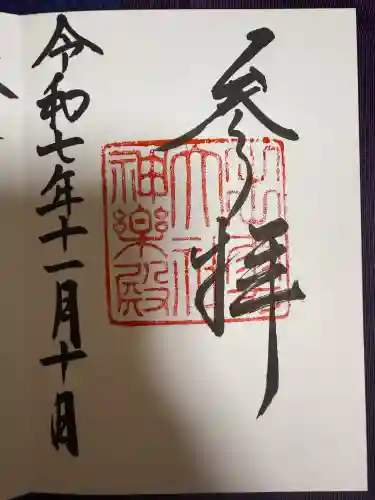 参拝
大社
神樂殿
令和七年十一月十日